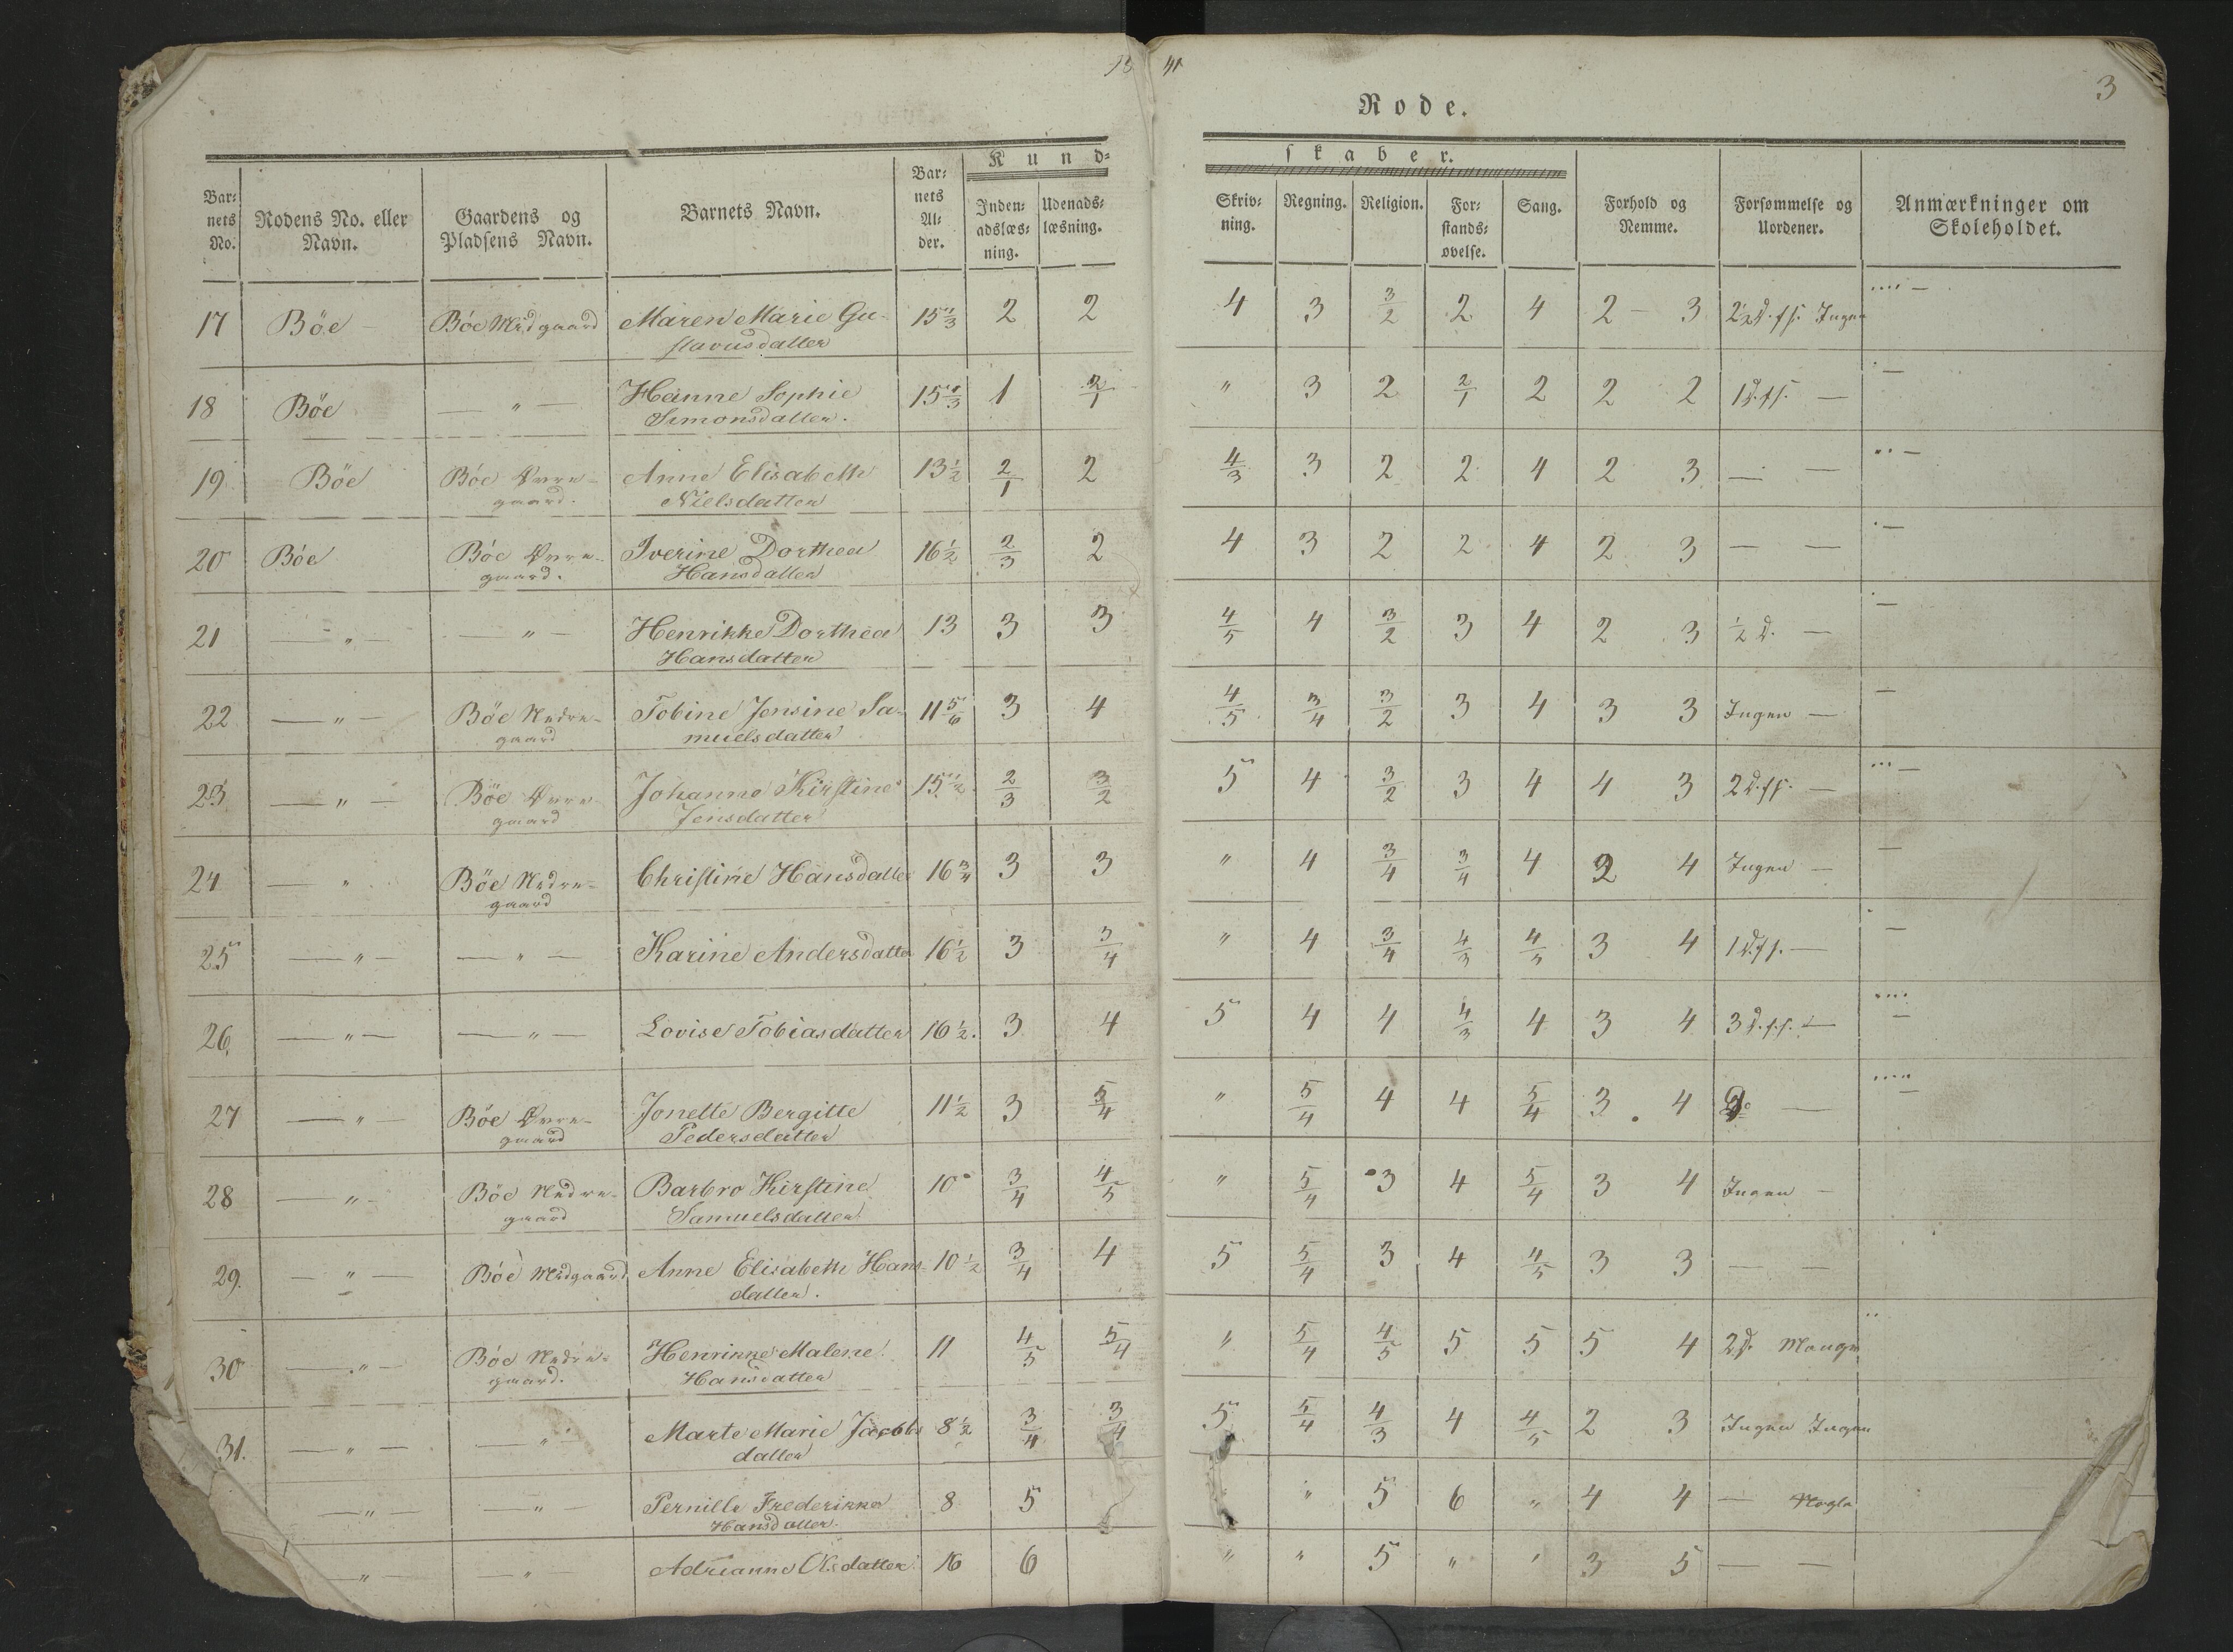 13 41
3
Rode.
Bar- nets No. | Rodens No. eller Navn. | Gaardens og Pladsens Navn. | Barnets Navn. | Bar- nets Al- der. | Kund-skaber. | Inden- adslæs- ning. | Udenads- læsning. | Skriv- ning. | Regning. | Religion. | For- stands- øvelse. | Sang. | Forhold og Nemme. | Forsømmelse og Uordener. | Anmærkninger om Skoleholdet.
17 Böe — Böe Midgaard Maren Marie Gu- 15 1/3 2 2 4 3 3/2 2 4 2 - 3 2½ d. fs. Ingen
stavusdatter
18 Böe — " — Hanne Sophie 15 1/3 1 2/1 " 3 2 2/1 2 2 2 1 d. fs. —
Simonsdatter.
19 Böe Böe Övre- Anne Elisabeth 13 1/2 2/1 2 4/3 3 2 2 4 2 3 — —
gaard. Nielsdatter
20 Böe Böe Övre- Iverine Dorthea 16 1/2 2/3 2 4 3 2 2 4 2 3 — —
gaard. Hansdatter
21 — " — — " — Henrikke Dorthea 13 3 3 4/5 4 3/2 3 4 2 3 1/2 d. —
Hansdatter
22 — " — Böe Nedre- Tobine Jensine Sa- 11 5/6 3 4 4/5 3/4 3/2 3 4 3 3 Ingen —
gaard muelsdatter
23 — " — Böe Övre- Johanne Kirstine 15 1/2 2/3 3/2 5 4 3/2 3 4 4 3 2 d. fs. —
gaard Jensdatter
24 — " Böe Nedre- Christine Hansdatter 16 3/4 3 3 " 4 3/4 3/4 4 2 4 Ingen —
gaard
25 — " — — " — Karine Andersdatter 16 1/2 3 3/4 " 4 3/4 4/3 4/5 3 4 1 d. fs. —
26. — " — — " — Lovise Tobiasdatter 16 1/2. 3 4 5 4 4 4/3 4 3 4 3 d. f. s. —
27 — " — Böe Övre- Jonette Bergitte 11 1/2 3 5/4 " 5/4 4 4 5/4 3 . 4 —
gaard Pedersdatter
28 — " — Böe Nedre- Barbro Kirstine 10 3/4 4/5 " 5/4 3 4 5/4 3 4 Ingen —
gaard Samuelsdatter
29. — " — Böe Midgaard Anne Elisabeth Hans- 10 1/2 3/4 4 5 5/4 3 4 4/5 3 3 — —
datter.
30 — " — Böe Nedre- Henrikke Malene 11 4/5 5/4 " 5/4 4/5 5 5 5 4 2 d. Mange
gaard. Hansdatter
31. — " — — " — Marte Marie Jacobs 8 1/2 3/4 3/4 5 5/4 4/3 4 4/5 2 3 Ingen Ingen
datter
— " — — " — Pernille Frederikke 8 5 " 5 6 " 4 4 — Nogle
Hansdatter.
— " — — " — Adrianne Olsdatter 16 6 " " 5 " " 3 5 — —